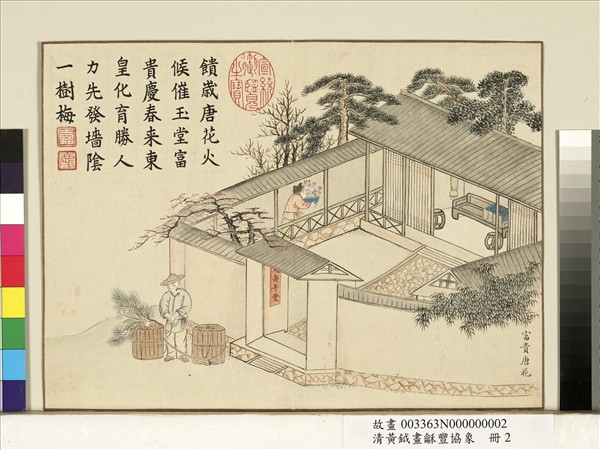 饋歲唐花火
候催玉堂富
貴慶春来東
皇化育勝人
力先發墻陰
一樹梅
富貴唐花
故畫 003363N000000002
清黃鉞畫龢豐協象 冊2